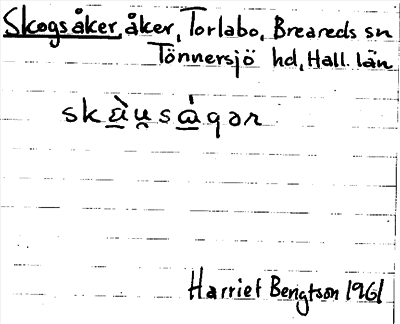 Skogsåker, åker, Torlabo, Breareds sn
Tönnersjö hd, Hall. län
skạ̀u̯sạ́qər
Harriet Bengtson 1961